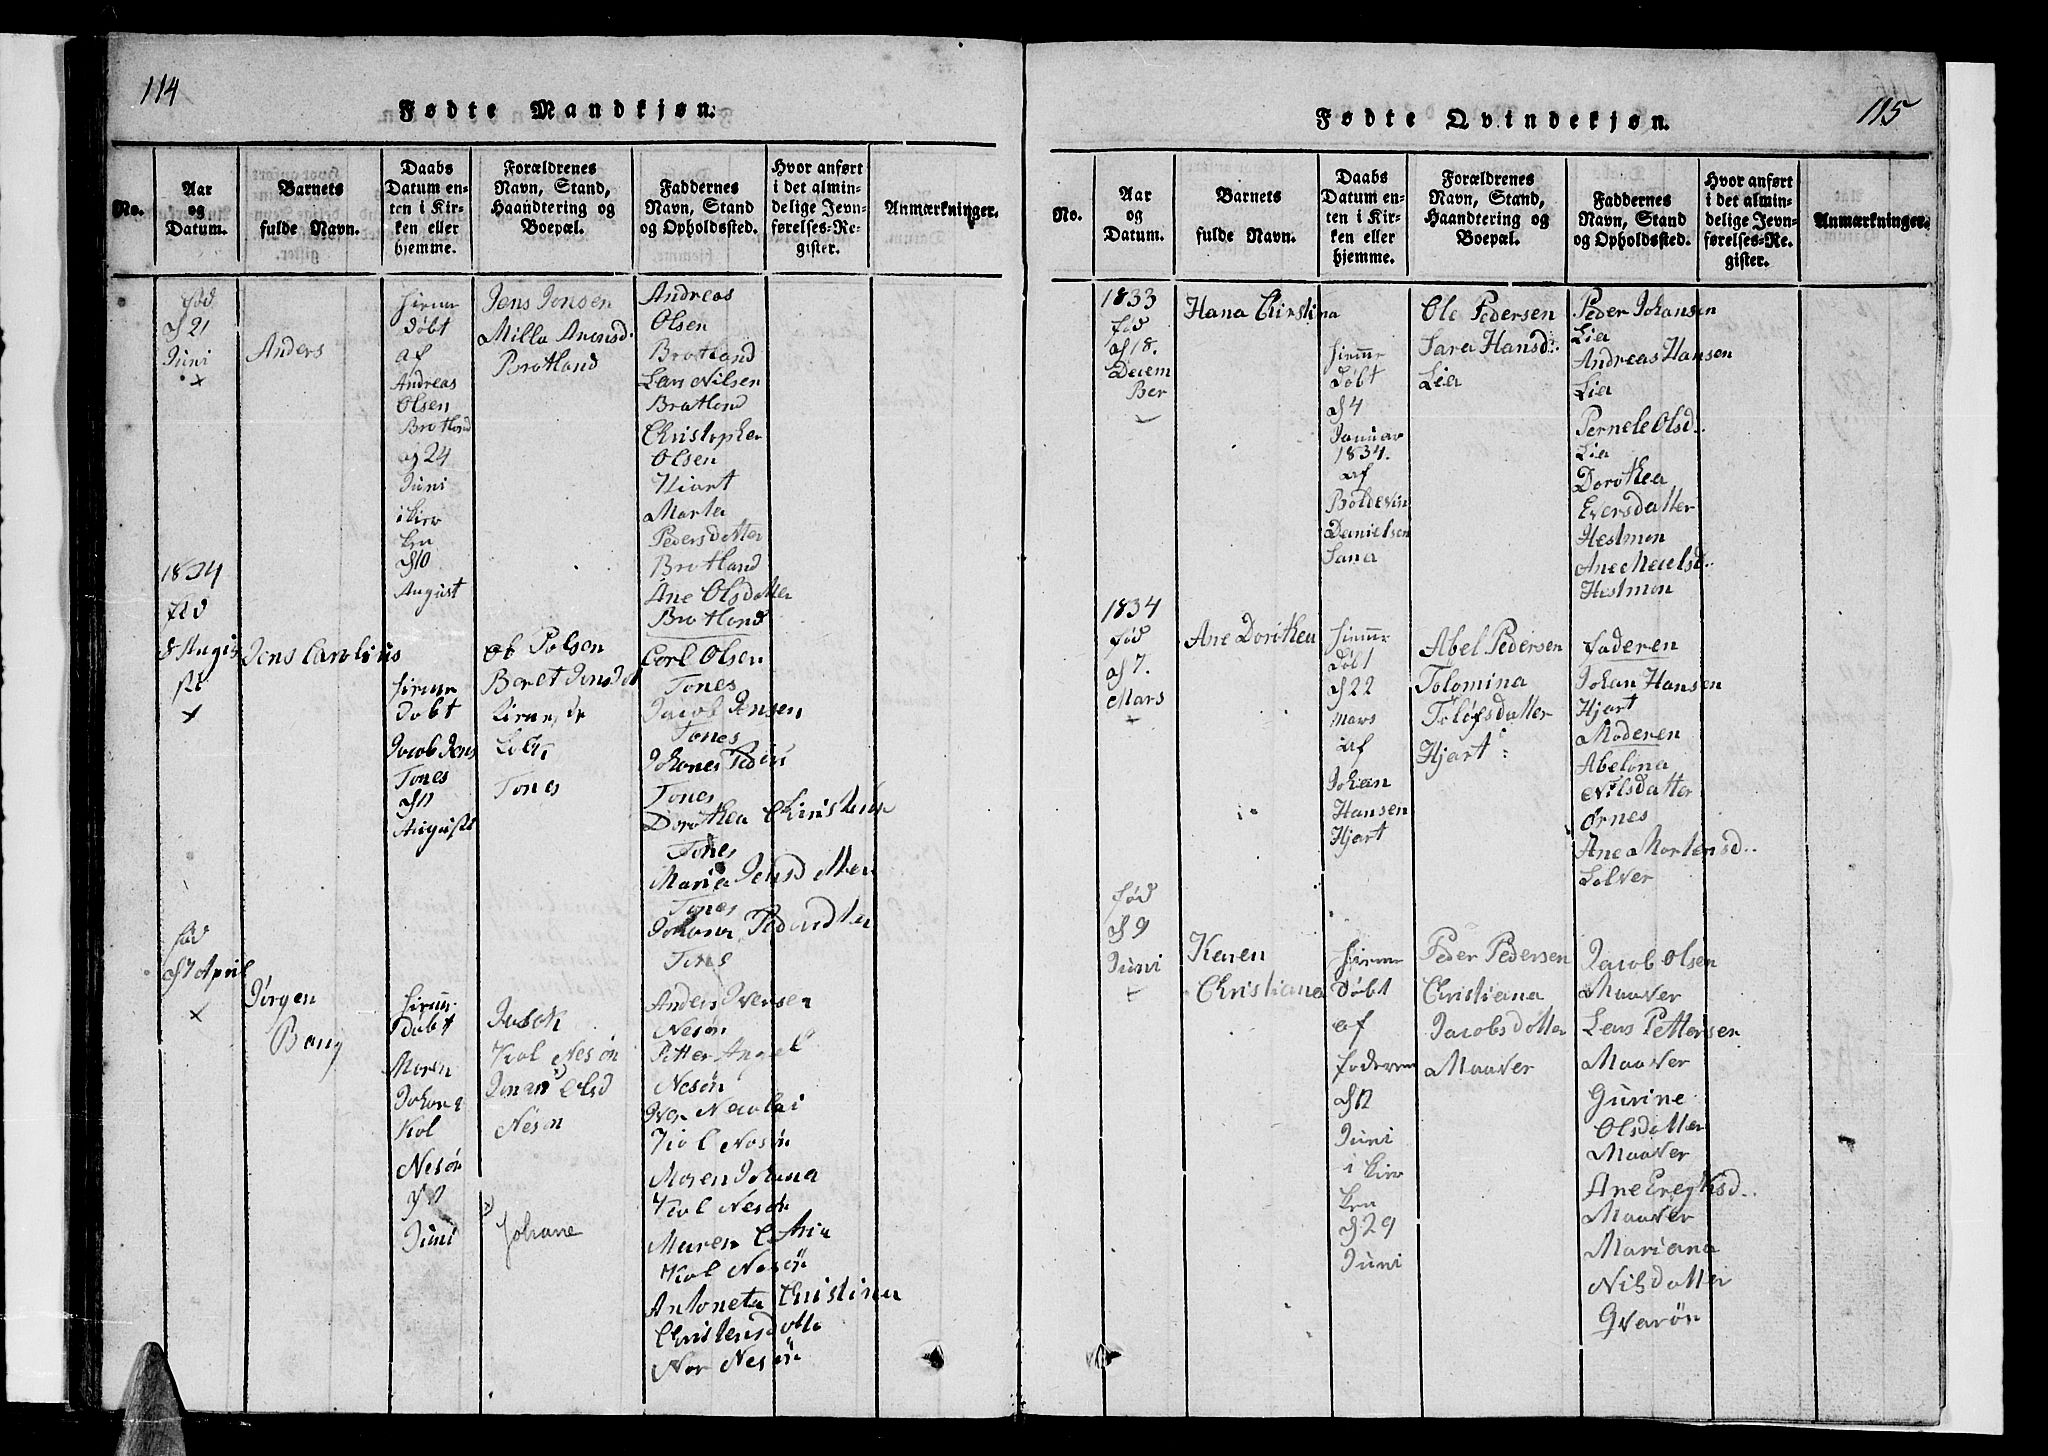 114
Fødte Mandkjøn.
No.
Aar
og
Datum.
Barnets
fulde Navn.
Daabs
Datum en-
ten i Kir-
ken eller
hjemme.
Forældrenes
Navn, Stand,
Haandtering og
Boepæl.
Faddernes
Navn, Stand
og Opholdssted.
Hvor anført
i det almin-
delige Jevn-
førelses-Re-
gister.
Anmærkninger.
fød
d 21
Juni
Anders
døbt
af
Andreas
Olsen
Brotlond
d 24
Juni
i kirv
ken
d 10
August
Jens Jonsen
Milla Anensd.
Brotland
Andreas
Olsen
Brotlond
Lars Nilsen
Bratlond
Christopher
Olsen
Hiart
Marta
Pedersdotter
Brotland
Ane Olsdotter
Brotlond
1834
fød
8 Augu
st
Jens Carolius
Døbt
Jacob Jens
Tones
d 11
August
Ob Polsen
Beret Jensd
Tones
Carl Olsen
Tones
Jacob Jensen
Tones
Johones Peders
Tones
Dorothea Christens
Tones
Maria Jensdotter
Tones
Johana Pedersdter
Tones
fød
d 7 April
Jørgen
Bang
Døbt
Moren
Johana
Kol
Nesøn
Juni
Jusok
Kol Nesøn
Jonan Olsd
Nesøn
Johane
Anders Iversen
Nesøn
Petter Angel
Nesøn
Iver Neculai
Kol Nesøn
Moren Johana
Kol Nesøn
Maren
Kol Nesøn
Antoneta Christina
Christensdotte
Nor Nesøn
115
Fødte Qvindekjøn.
No.
Aar
og
Datum.
Barnets
fulde Navn.
Daabs
Datum en-
ten i Kir-
ken eller
hjemme.
Forældrenes
Navn, Stand,
Haandtering og
Boepæl.
Faddernes
Navn, Stand
og Opholdssted.
Hvor anført
i det almin-
delige Jevn-
førelses-Re-
gister.
Anmærkninger.
1833
fød
d 18.
Decem
Ber
Hana Chirstina
døbt
d 4
Januar
1834.
af
Boldevin
Danielsen
Sana
Ole Pedersen
Sara Hansd.
Lia
Peder Johansen
Lia
Andreas Hansen
Lia
Pernele Olsd.
Lia
Dorothea
Eversdatter
Hestmon
Ane Neulsd.
Hestmon
1834
fød
d 7.
Mars
Ane Dorothea
Døbt
d 22
Mars
af
Johan
Hansen
Hjart
Abel Pedersen
Tolomina
Toløfsdatter
Hjart
Faderen
Johan Hansen
Hjart
Moderen
Abelona
Nilsdatter
Ørnes
Ane Mortensd.
Lølver
fød
d 9
Juni
Karen
Christiana
døbt
af
foderen
d 12
Juni
i kirv
ken
d 29
Juni
Peder Pedersen
Christiana
Jacobsdotter
Maaver
Jacob Olsen
Maaver
Lars Pettersen
Maaver
Gurine
Olsdotter
Maaver
Ane Eregksd.
Maaver
Mariana
Nilsdotter
Gvarøn